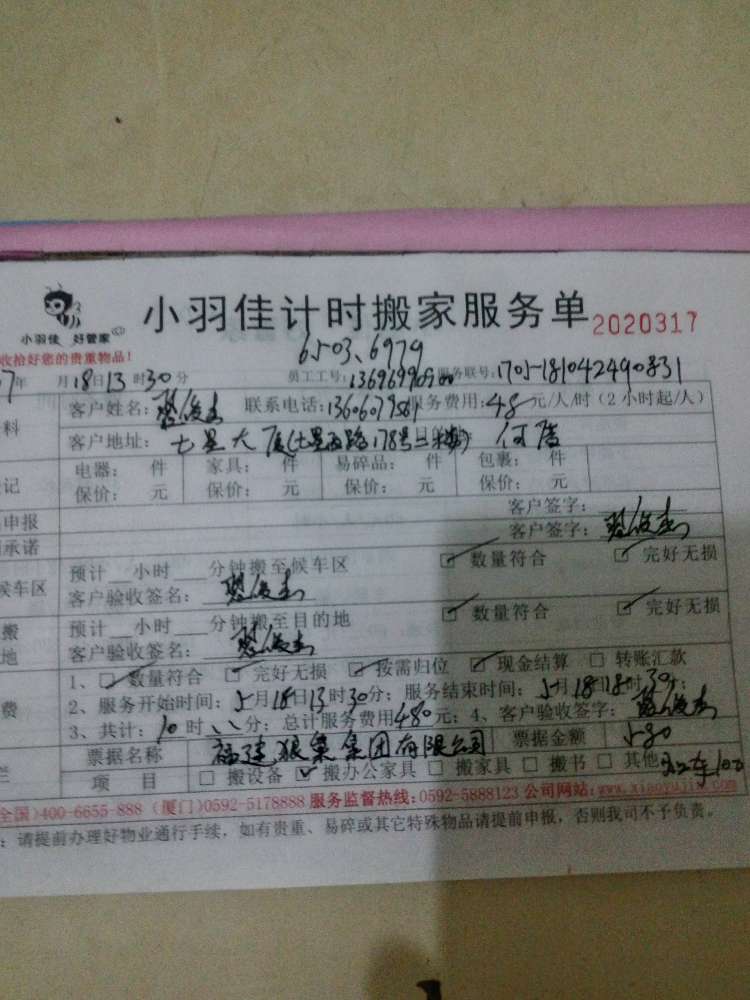 小羽佳计时搬家服务单 2020317
小羽佳 好管家
收拾好您的贵重物品！
6503、6979
7年 月18日13时30分 员工工号： 服务联号：1705-181042490831
料 客户姓名： 俊杰 联系电话： 服务费用：48元/人/时（2小时起/人）
客户地址：七星大厦(七星西路178号 楼)
记 电器： 件 家具： 件 易碎品： 件 包裹： 件
保价： 元 保价： 元 保价： 元 保价： 元
申报 客户签字：
承诺 客户签字： 俊杰
候车区 预计__小时__分钟搬至候车区 数量符合 完好无损
客户验收签名： 俊杰
搬 预计__小时__分钟搬至目的地 数量符合 完好无损
地 客户验收签名： 俊杰
1、 数量符合 完好无损 按需归位 现金结算 转账汇款
费 2、服务开始时间：5月18日13时30分；服务结束时间：5月18日18时30分；
3、共计：10时 分；总计服务费用480元；4、客户验收签字： 俊杰
票据名称 福建 集团有限公司 票据金额 580
栏 项 目 搬设备 搬办公家具 搬家具 搬书 其他 车100
全国)400-6655-888 (厦门)0592-5178888 服务监督热线：0592-5888123 公司网站：www.xiaoyujia.com
：请提前办理好物业通行手续，如有贵重、易碎或其它特殊物品请提前申报，否则我司不予负责。